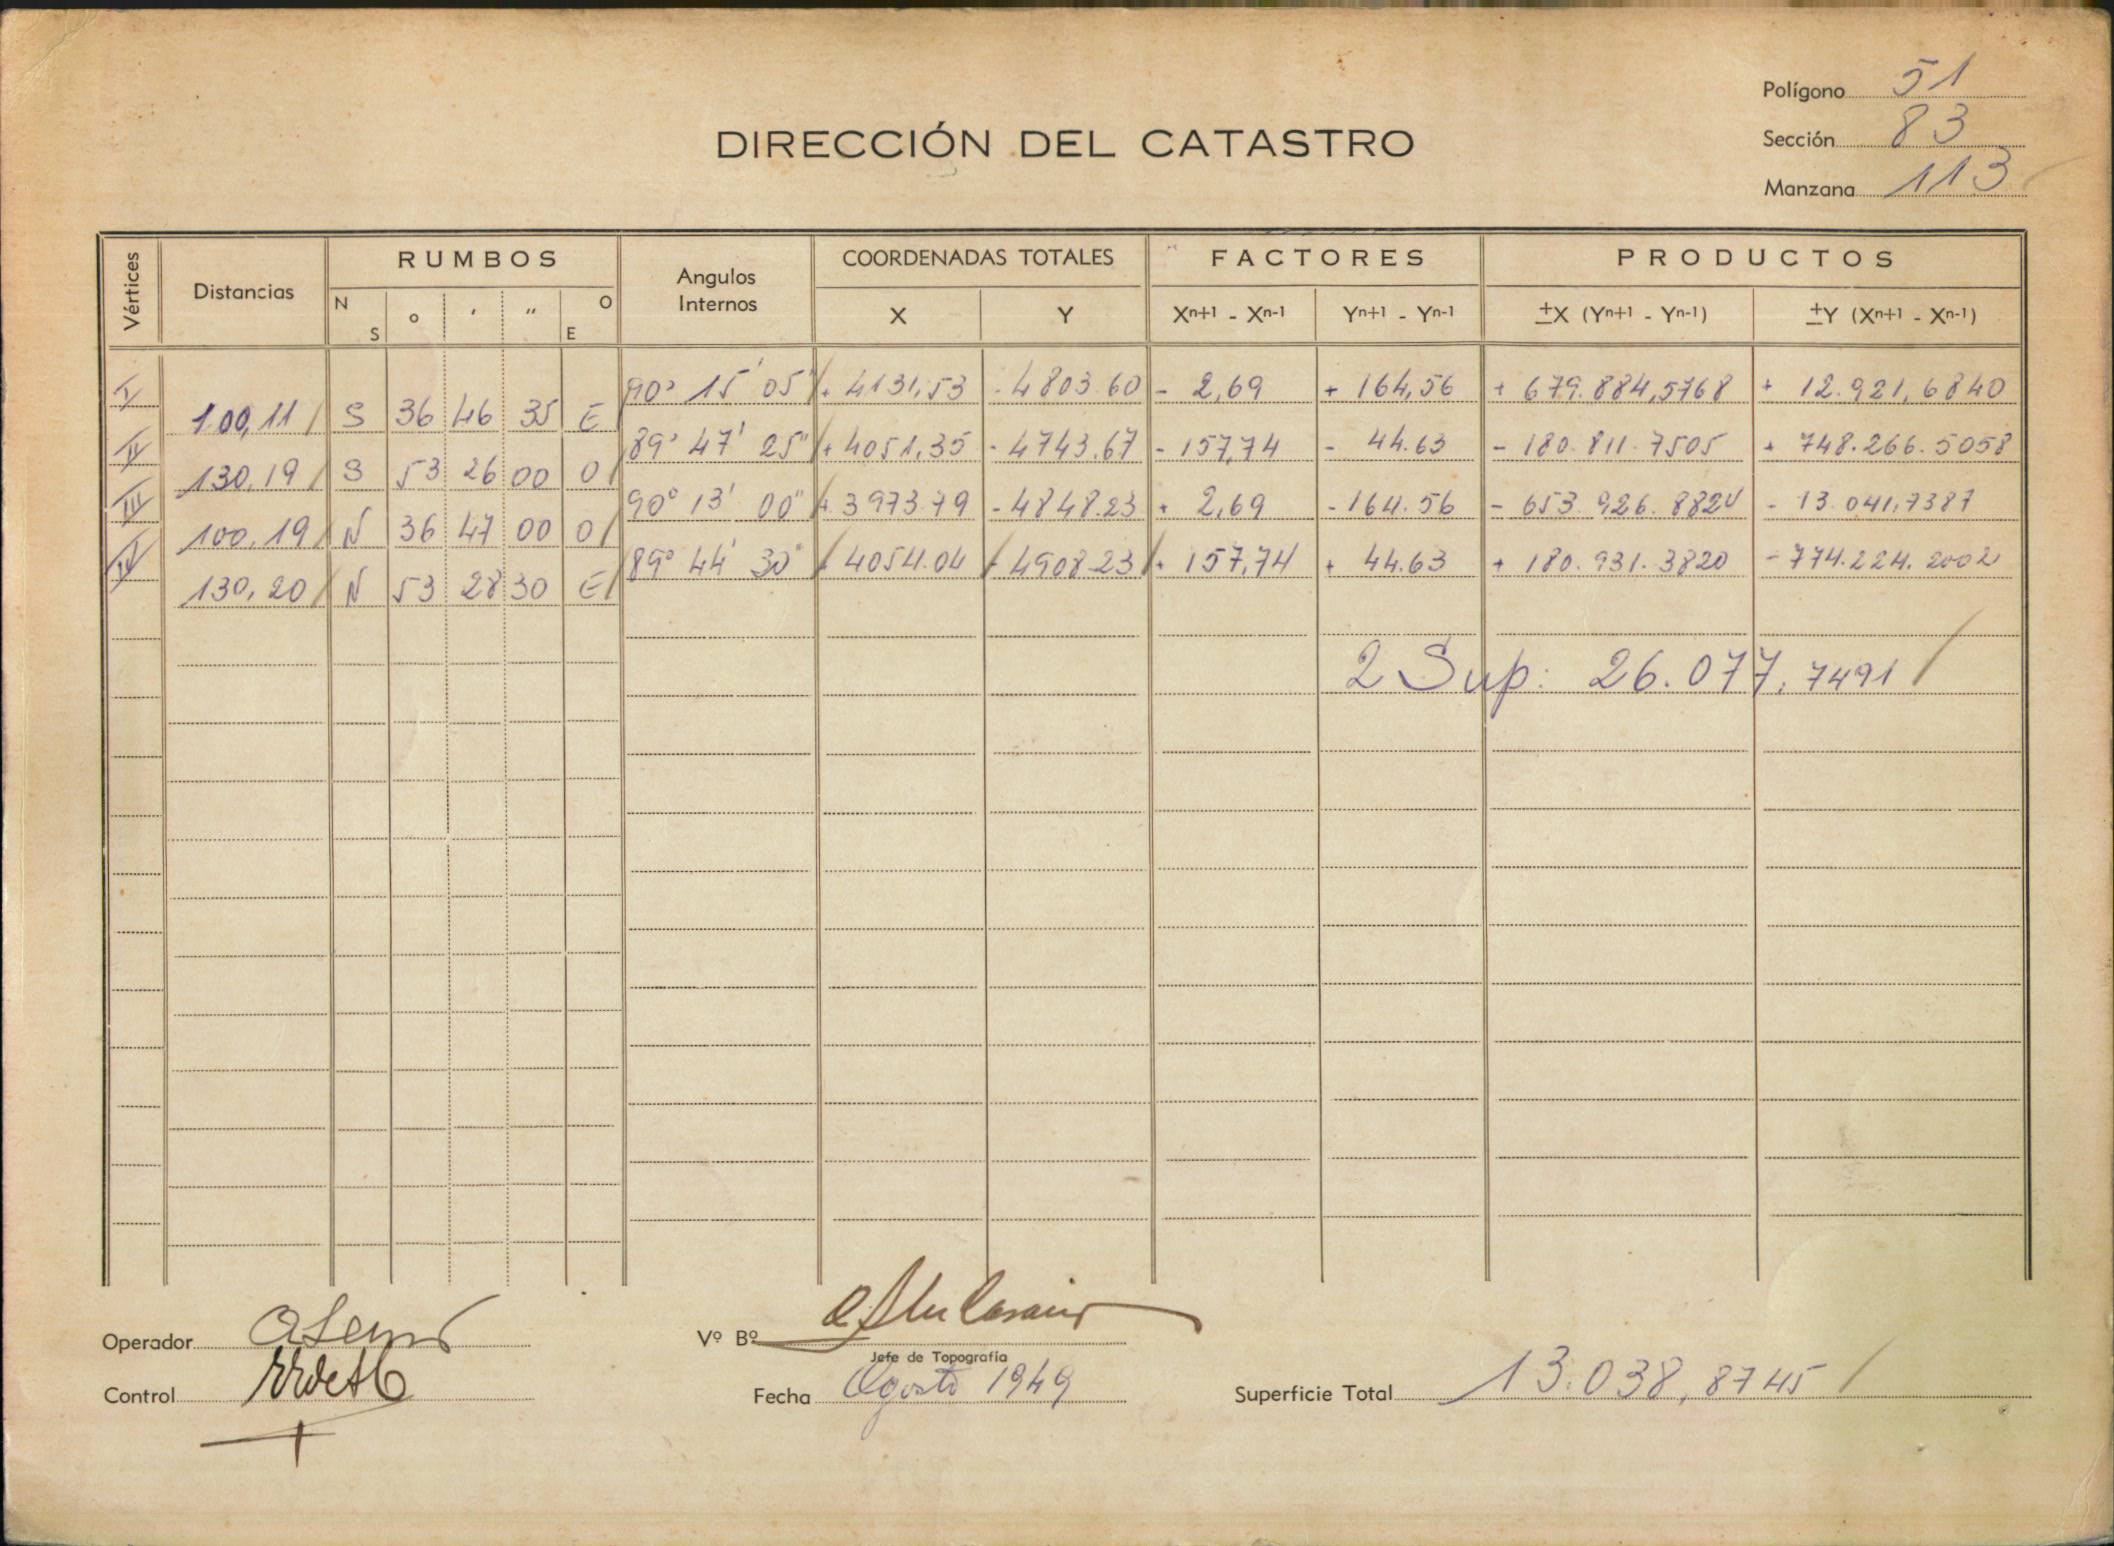 Polígono 51
DIRECCIÓN DEL CATASTRO
Sección 83
Manzana 113
Vértices Distancias RUMBOS Angulos Internos COORDENADAS TOTALES FACTORES PRODUCTOS
N S ° ' " O E X Y Xn+1 - Xn-1 Yn+1 - Yn-1 ±X (Yn+1 - Yn-1) ±Y (Xn+1 - Xn-1)
I 90° 15' 05" + 4131,53 - 4803.60 - 2,69 + 164,56 + 679.884,5768 + 12.921,6840
100,11 S 36 46 35 E
II 89° 47' 25" + 4051,35 - 4743,67 - 157,74 - 44.63 - 180.811.7505 + 748.266.5058
130,19 S 53 26 00 O
III 90° 13' 00" + 3973.79 - 4848.23 + 2,69 - 164.56 - 653.926.8824 - 13.041,7387
100,19 N 36 47 00 O
IV 89° 44' 30" 4054.04 4908.23 + 157,74 + 44.63 + 180.931.3820 - 774.224.2002
130,20 N 53 28 30 E
2 Sup: 26.077,7491
Operador
Vº Bº
Jefe de Topografía
Control
Fecha Agosto 1949
Superficie Total 13.038,8745